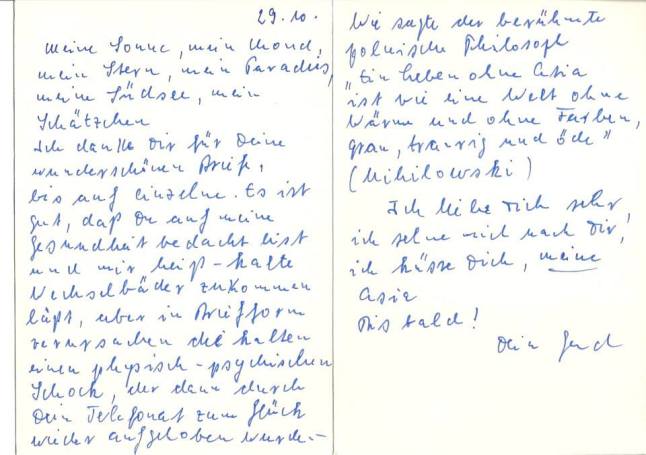 29.10.
Meine Sonne, mein Mond,
mein Stern, mein Paradies,
meine Südsee, mein
Schätzchen
Ich danke Dir für Deine
wunderschönen Briefe,
bis auf einzelne. Es ist
gut, daß Du auf meine
Gesundheit bedacht bist
und mir heiß-kalte
Wechselbäder zukommen
läßt, aber in Briefform
verursachen die kalten
einen physisch-psychischen
Schock, der dann durch
Dein Telefonat zum Glück
wieder aufgehoben wurde.—
Wie sagte der berühmte
polnische Philosoph
"Ein Leben ohne Asia
ist wie eine Welt ohne
Wärme und ohne Farben,
grau, traurig und öde"
(Mihilowski)
Ich liebe Dich sehr!
ich sehne mich nach Dir,
ich küsse Dich, meine
Asia
Bis bald!
Dein Gerd